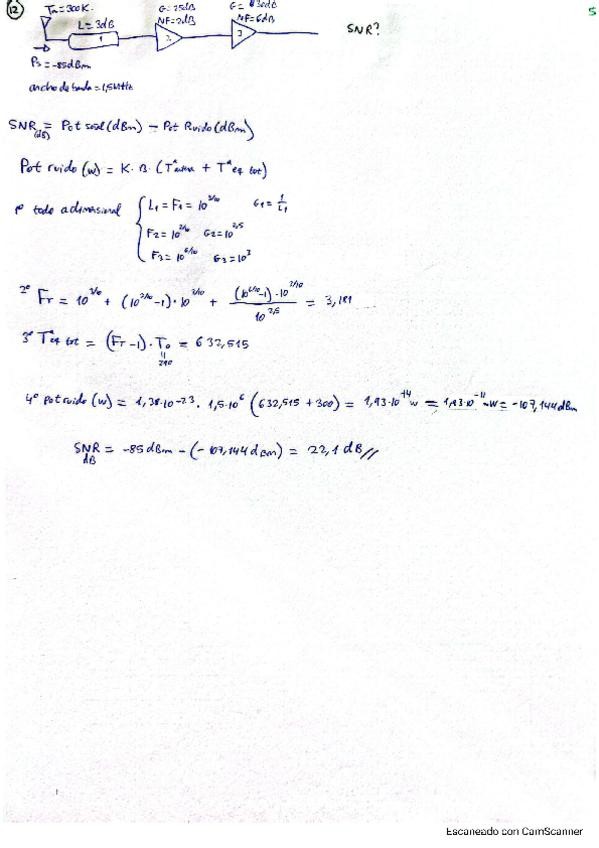 12 Ta=300K. G=25dB G=30dB 5
L=3dB NF=2dB NF=6dB SNR?
1 2 3
Ps=-85dBm
ancho de banda=1,5MHz
SNR(dB) = Pot señal(dBm) - Pot Ruido(dBm)
Pot ruido(w) = K·B·(Tªantena + Tªeq tot)
1º todo adimensional { L1=F1=10^3/10 G1=1/L1
F2=10^2/10 G2=10^2,5
F3=10^6/10 G3=10^3
2º FT = 10^3/10 + (10^2/10-1)·10^3/10 + (10^6/10-1)·10^3/10 / 10^2,5 = 3,181
3º Tªeq tot = (FT-1)·T0 = 632,515
290
4º Pot ruido(w) = 1,38·10^-23 · 1,5·10^6 (632,515+300) = 1,93·10^-14 w = 1,93·10^-11 mW = -107,144dBm
SNR dB = -85dBm - (-107,144dBm) = 22,1 dB //
Escaneado con CamScanner